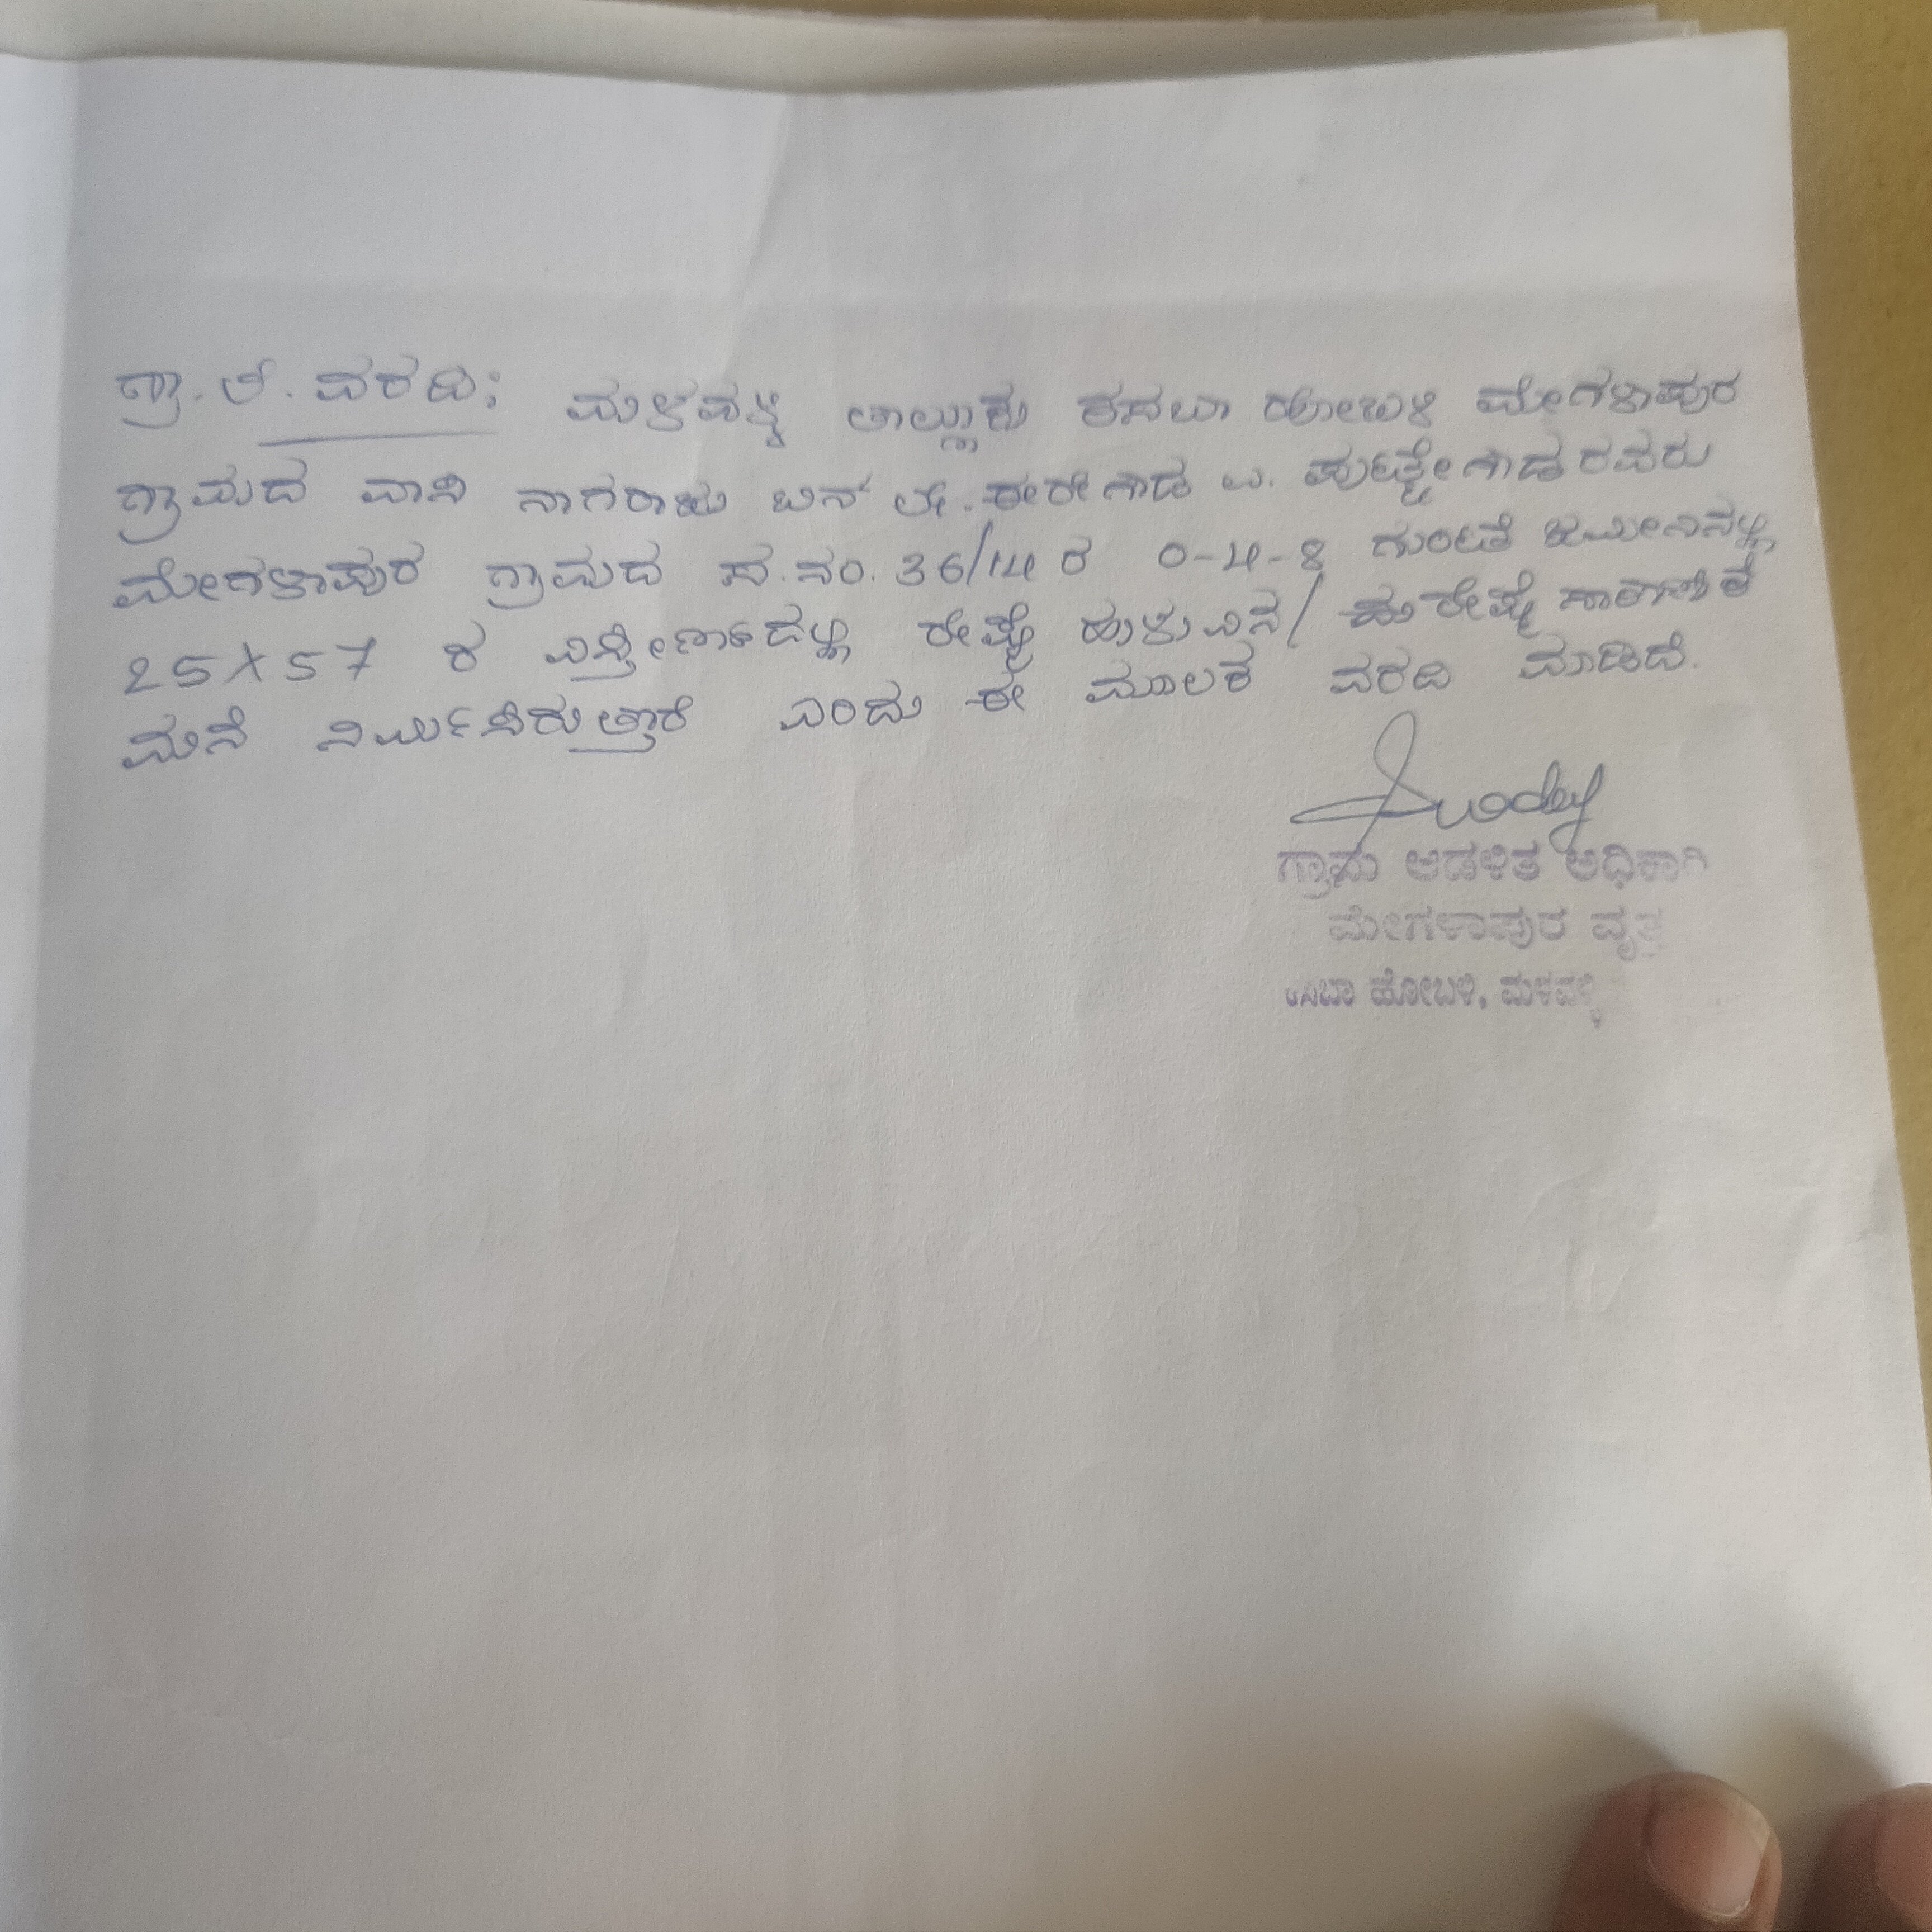 ಗ್ರಾ. ಲೆ. ವರದಿ: ಮಳವಳ್ಳಿ ತಾಲ್ಲೂಕು ಕಸಬಾ ಹೋಬಳಿ ಮೇಗಳಾಪುರ
ಗ್ರಾಮದ ವಾಸಿ ನಾಗರಾಜು ಬಿನ್ ಲೇ. ಈರೇಗೌಡ ಉ. ಪುಟ್ಟೇಗೌಡ ರವರು
ಮೇಗಳಾಪುರ ಗ್ರಾಮದ ಸ.ನಂ. 36/14 ರ 0-4-8 ಗುಂಟೆ ಜಮೀನಿನಲ್ಲಿ
25X57 ರ ವಿಸ್ತೀರ್ಣದಲ್ಲಿ ರೇಷ್ಮೆ ಹುಳುವಿನ/ ರೇಷ್ಮೆ ಸಾಕಾಣಿಕೆ
ಮನೆ ನಿರ್ಮಿಸಿರುತ್ತಾರೆ ಎಂದು ಈ ಮೂಲಕ ವರದಿ ಮಾಡಿದೆ.
ಗ್ರಾಮ ಆಡಳಿತ ಅಧಿಕಾರಿ
ಮೇಗಳಾಪುರ ವೃತ್ತ
ಕಸಬಾ ಹೋಬಳಿ, ಮಳವಳ್ಳಿ